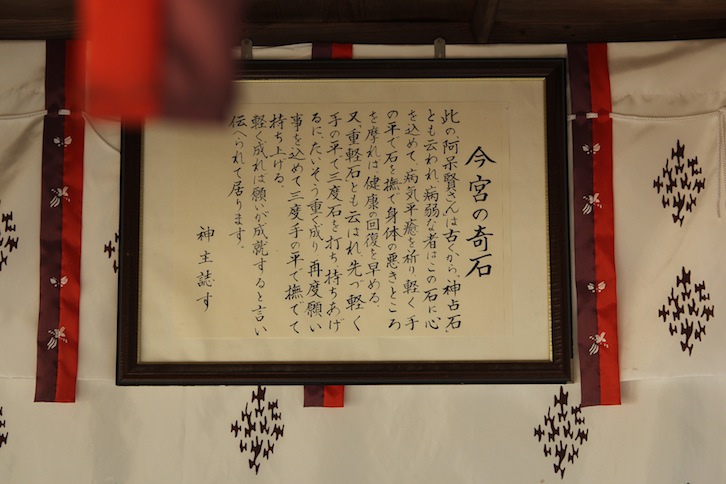 今宮の奇石
此の、阿呆賢さん、は古くから、神占石、
とも云われ、病弱な者はこの石に心
を込めて、病気平癒を祈り軽く手
の平で石を撫で身体の悪きところ
を摩れば、健康の回復を早める、
又、重軽石とも云はれ、先づ軽く
手の平で三度石を打ち持ちあげ
るに、たいそう重く成り、再度願い
事を込めて三度手の平で撫でて
持ち上げる、
軽く成れば願いが成就すると言い
伝へられて居ります。
神主誌す